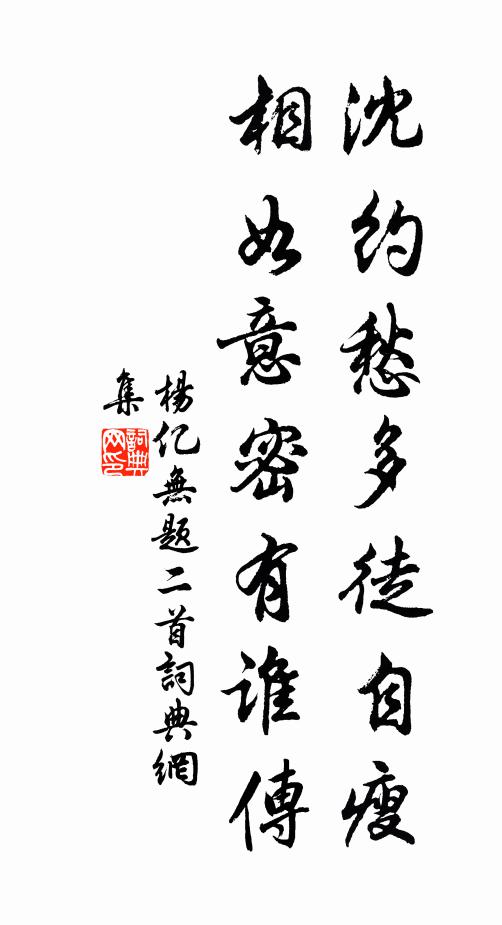 沈約愁多徒自瘦
相如意密有誰傳
楊億無題二首詞典網
集
詞典
网印